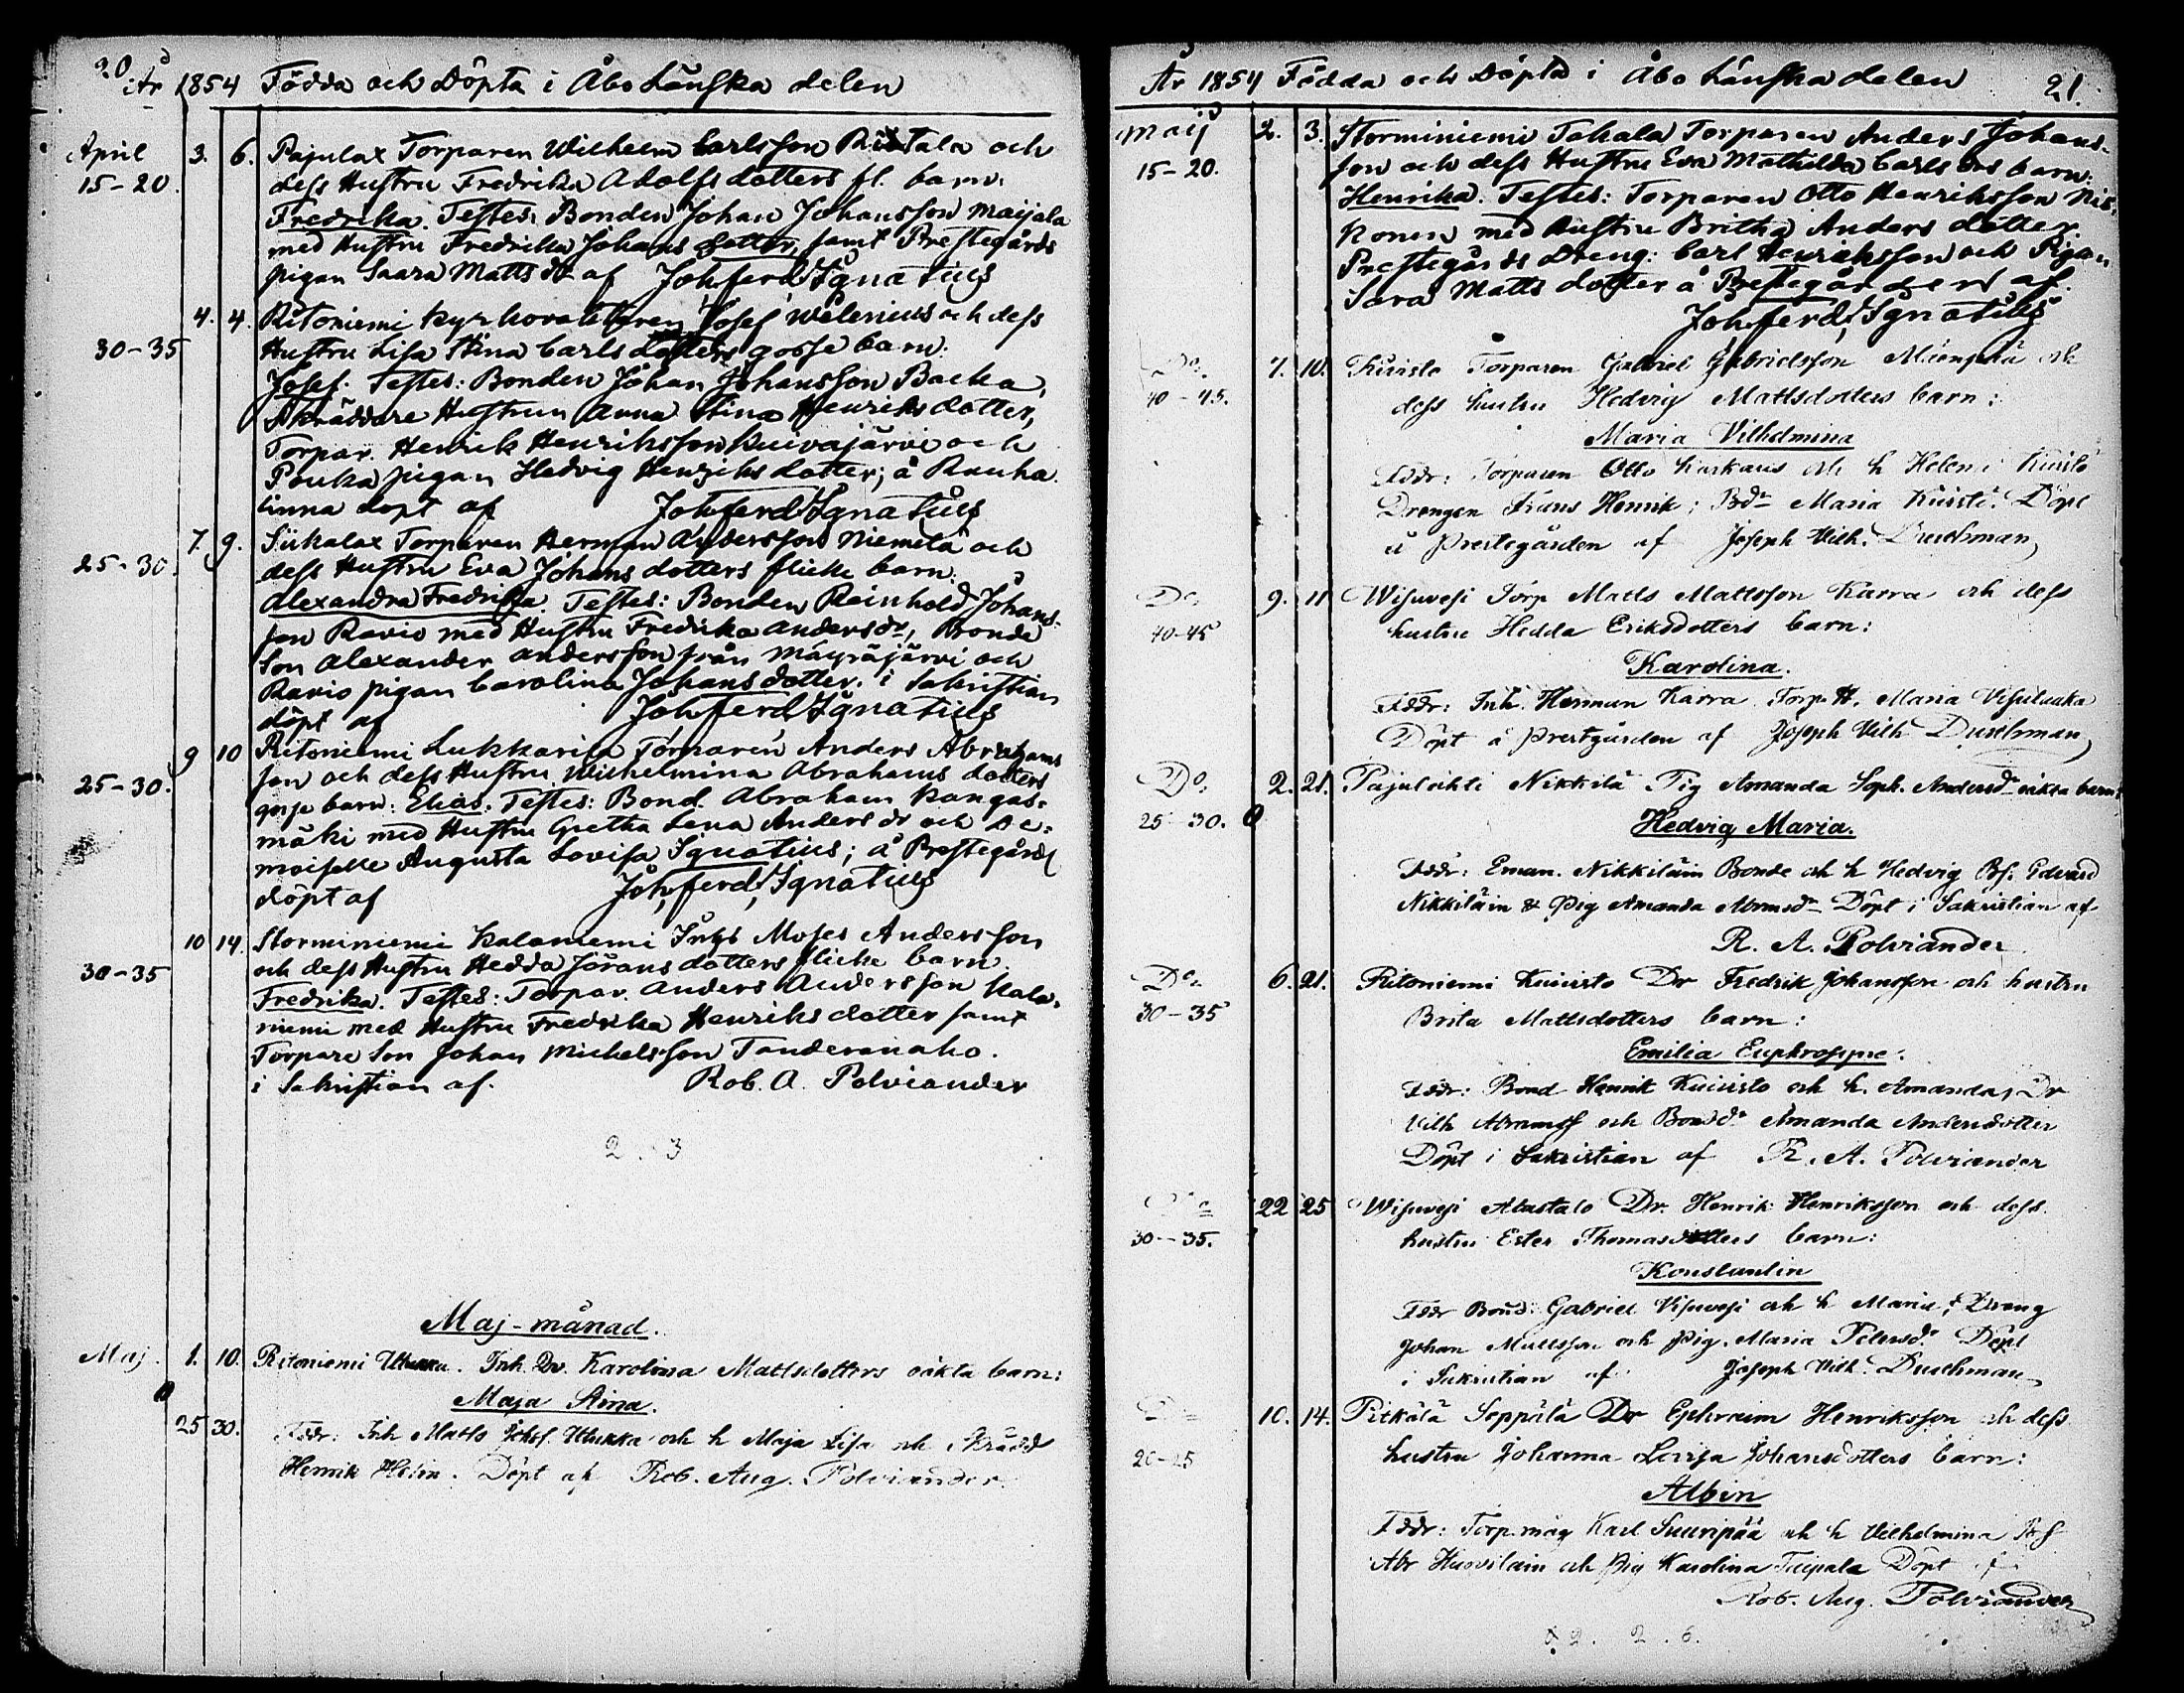 20. År 1854 Födda och Döpta i Åbo Länska delen
April 3. 6. Pajulax Torparen Wilhelm Carlsson och
15-20. dess Hustru Fredrika Adolfs dotters fl. barn.
Fredrika. Testes: Bonden Johan Johansson Maijala
med Hustru Fredrika Johans dotter, samt Prestegårds
pigan Saara Matts dr af Joh. ferd. Ignatius
4. 4. Ritoniemi Josef Welenius och dess
30-35 Hustru Lisa Stina Carls dotters gosse barn.
Josef. Testes: Bonden Johan Johansson Backa,
Skräddare Hustrun Anna Stina Henriks dotter,
Torpar. Henrik Henriksson Kuivajärvi och
Pouka pigan Hedvig Henriks dotter; å Rauha
linna döpt af Joh. ferd. Ignatius
7. 9. Siikalax Torparen Herman Andersson Niemelä och
25-30. dess Hustru Eva Johans dotters flicke barn.
Alexandra Fredrika. Testes: Bonden Reinhold Johans-
son Ravio med Hustru Fredrika Anders dr, Bonde
Son Alexander Andersson från Mäyräjärvi och
Ravio pigan Carolina Johans dotter. i Sakristian
döpt af Joh. ferd. Ignatius
9 10 Ritoniemi Lukkarila Torparen Anders Abrahams
25-30. son och dess Hustru Wilhelmina Abrahams dotters
gosse barn: Elias. Testes: Bond. Abraham Kangas-
mäki med Hustru Gretha Lena Anders dr och De-
moiselle Augusta Lovisa Ignatius; å Prestegård
döpt af Joh. ferd. Ignatius
10 14. Storminiemi Kalaniemi Inhs Moses Andersson
30-35 och dess Hustru Hedda Görans dotters flicke barn.
Fredrika. Testes: Torpar. Anders Andersson Kala-
niemi med Hustru Fredrika Henriks dotter samt
Torpare Son Johan Michelsson Tanderinaho.
i Sakristian af. Rob. A. Polviander
2. 3
Maj-månad.
Maj. 1. 10. Ritoniemi Uttukka. Inh. Dr. Karolina Mattsdotters oäkta barn:
Maja Stina.
25 30. Fddr: Inh Matts Johss. Uttukka och h Maja Lisa och Skrädd
Henrik Helin. Döpt af Rob. Aug. Polviander.
År 1854 Födda och Döpta i Åbo Länska delen 21.
Maij 2. 3. Storminiemi Tahala Torparen Anders Johans-
15-20. son och dess Hustru Eva Mathilda Carls drs barn.
Henrika. Testes: Torparen Otto Henriksson Nis-
konen med Hustru Britha Anders dotter.
Prestegårds Dreng: Carl Henriksson och Pigan
Sara Matts dotter å Prestegården af.
Joh. ferd. Ignatius
Do. 7. 10. Kuisto Torparen Gabriel Gabrielsson och
40-45. dess hustru Hedvig Mattsdotters barn:
Maria Vilhelmina
Fddr: Torparen Otto och h Helena
Drengen Frans Henrik; Bdr Maria Döpt
å Prestegården af Joseph Vilh. Duschman
Do. 9. 11 Wisuvesi Torp Matts Mattsson Karra och dess
40-45 hustru Hedda Eriksdotters barn:
Karolina.
Fddr: Inh. Herman Karra Torp. H. Maria
Döpt å Prestgården af Joseph Vilh Duschman
Do. 2. 21. Pajulahti Nikkilä Pig Amanda Soph. Andersdr oäkta barn:
25-30. Hedvig Maria.
Fddr: Eman. Nikkiläin Bonde och h Hedvig Bs. Edvard
Nikkiläin & Pig Amanda Abrmsdr Döpt i Sakristian af
R. A. Polviander
Do. 6. 21. Ritoniemi Kuiuisto Dr Fredrik Johansson och hustru
30-35 Brita Mattsdotters barn:
Emilia Euphrosyne.
Fddr: Bond Henrik Kuiuisto och h. Amanda, Dr
Vilh Abramss och Bondr Amanda Andersdotter
Döpt i Sakristian af R. A. Polviander
22 25 Wisuvesi Alastalo Dr. Henrik Henriksson och dess
30-35. hustru Ester Thomasdotters barn:
Konstantin
Fddr Bond: Gabriel Visuvesi och h Maria, Dreng
Johan Mattsson och Pig. Maria Petersdr Döpt
i Sakristian af Joseph Vilh. Duschman
10. 14. Pitkälä Seppälä Dr Ephraim Henriksson och dess
20-25 hustru Johanna Lovisa Johansdotters barn:
Albin
Fddr: Torp.måg Karl Suuripää och h Vilhelmina Bs
Abr Huovilain och Pig Karolina Döpt af
Rob. Aug. Polviander
2. 2. 6.